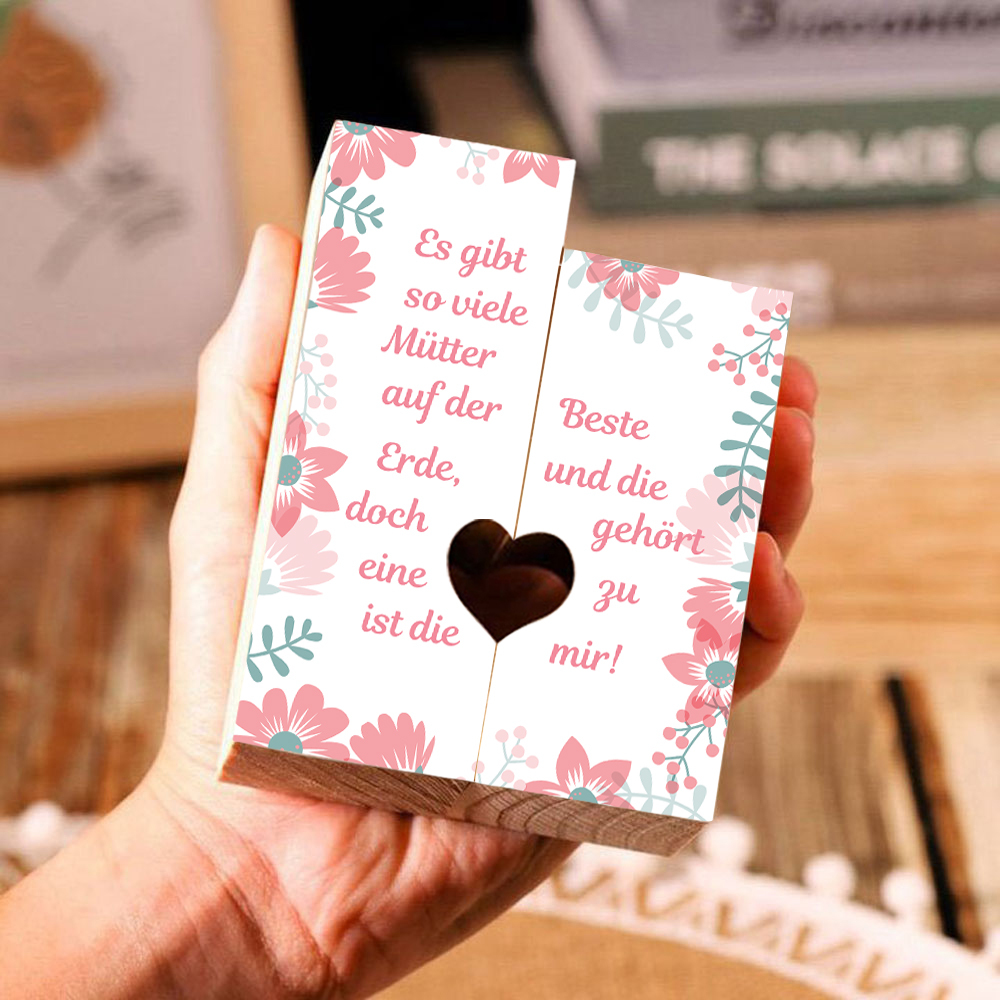 Es gibt
so viele
Mütter
auf der
Erde,
doch
eine
ist die
Beste
und die
gehört
zu
mir!
THE SOLACE